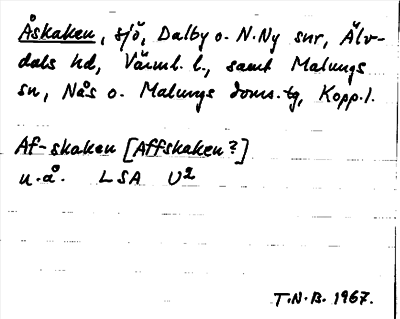 Åskaken, sjö, Dalby o. N. Ny snr, Älv-
dals hd, Värml. l., samt Malungs
sn, Nås o. Malungs doms.-tg, Kopp. l.
Af-skaken [Affskaken?]
u.å. LSA U2
T.N.B. 1967.